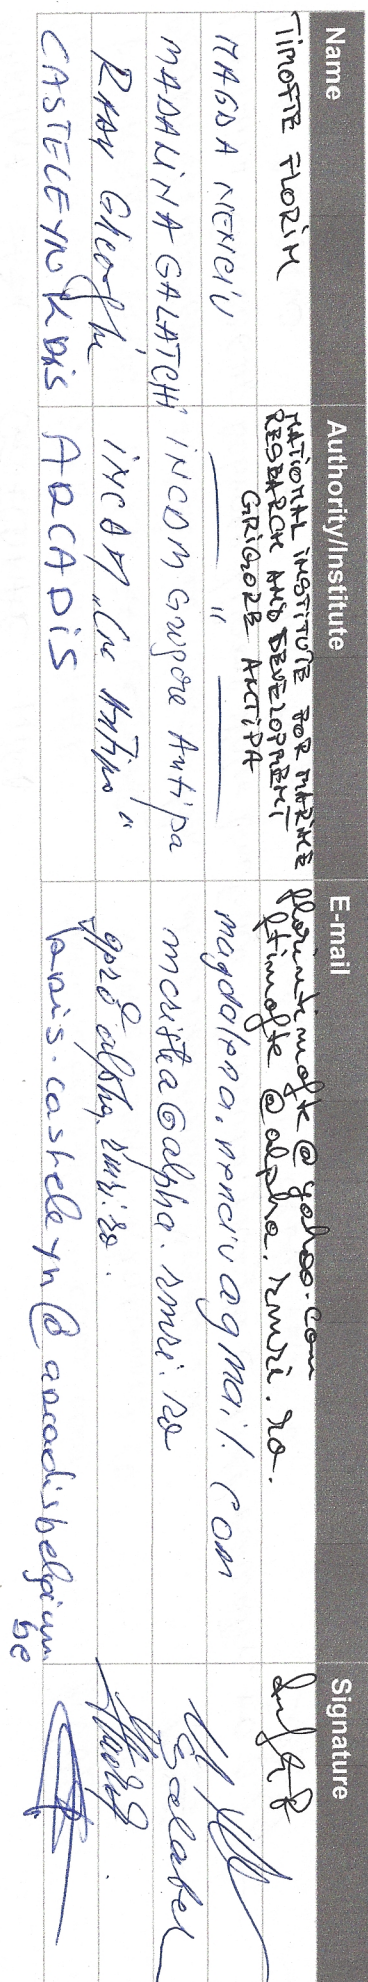 Name Authority/Institute E-mail Signature
TIMOFTE FLORIN NATIONAL INSTITUTE FOR MARINE RESEARCH AND DEVELOPMENT GRIGORE ANTIPA florintimofte@yahoo.com ftimofte@alpha.rmri.ro.
MAGDA NENCIU — " — magdalena.nenciu@gmail.com
MADALINA GALATCHI INCDM Grigore Antipa marilia@alpha.rmri.ro
RADU Gheorghe INCDM "Gr. Antipa" gpr@alpha.rmri.ro.
CASTELEYN KRIS ARCADIS kris.casteleyn@arcadisbelgium.be